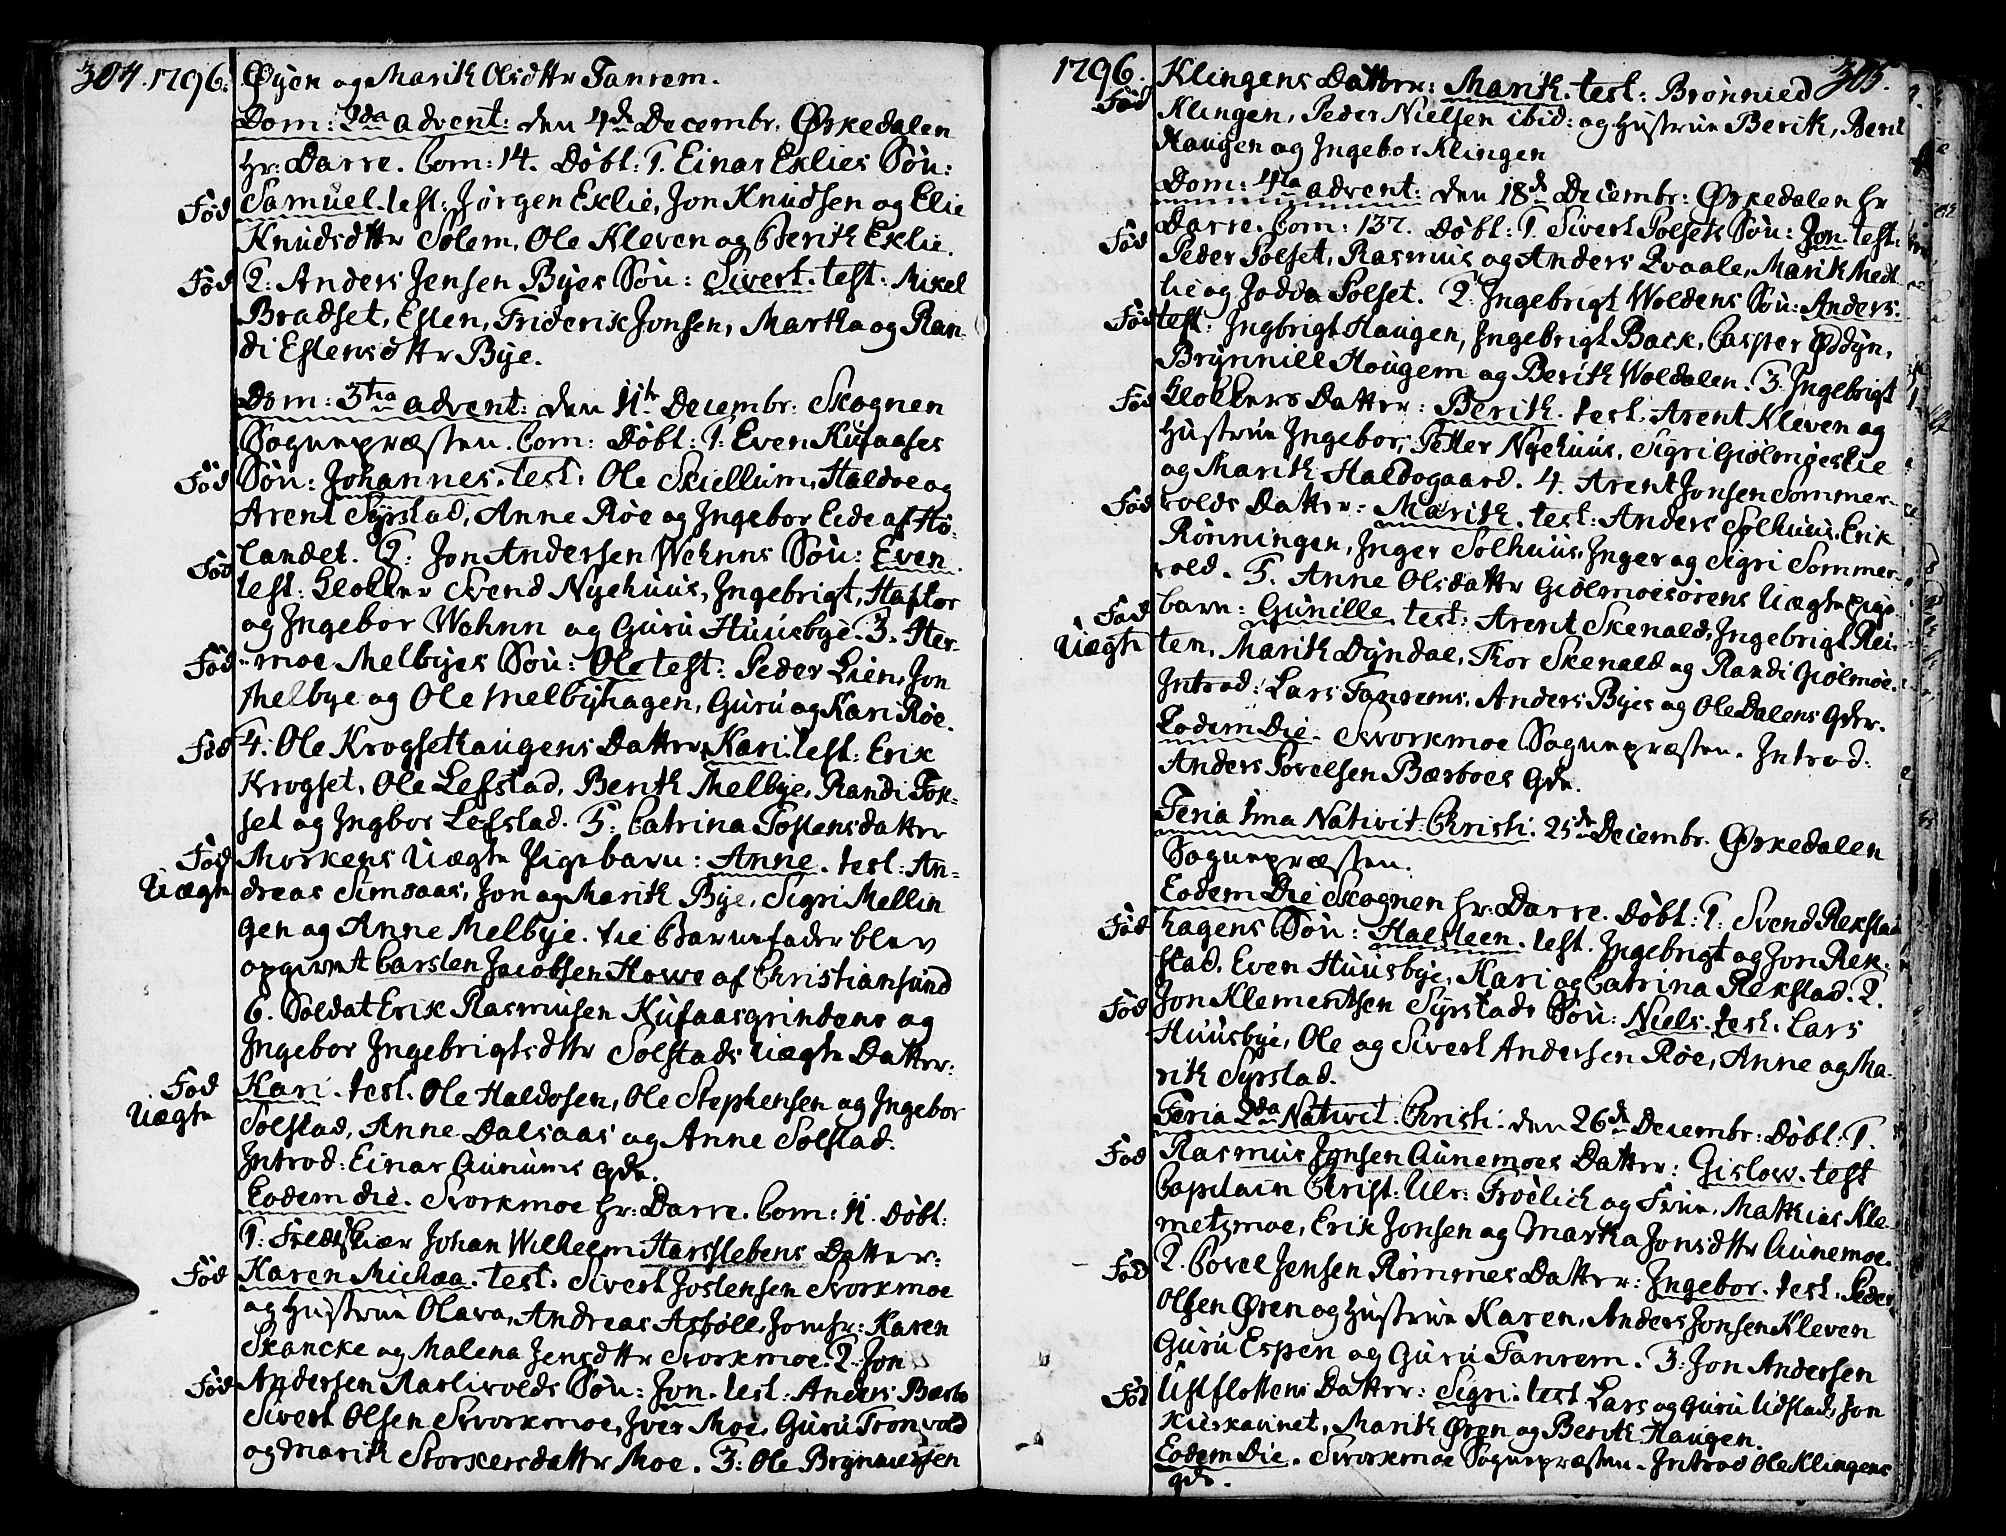 304. 1796.
Øyen og Marith Olsdttr Fanrem.
Dom: 2da advent: den 4de Decembr. Ørkedalen
hr: Darre. Com: 14. Døbl: 1. Einar Eklies Søn:
Fød Samuel. test: Jørgen Eklie, Jon Knudsen og Elie
Knudsdttr Solem, Ole Kleven og Berith Eklie.
Fød 2: Anders Jensen Byes Søn: Sivert. test: Mikel
Bradset, Esten, Friderik Jonsen, Martha og Ran-
di Estensdttr Bye.
Dom: 3tia advent: den 11te Decembr: Skognen
Sognepræsten. Com: Døbl: 1: Even Kufaases
Fød Søn: Johannes. test: Ole Skiellum, Haldoe og
Arent Syrstad, Anne Røe og Ingebor Eide af Hø-
landet. 2: Jon Andersen Wehnns Søn: Even.
Fød test: Klokker Svend Nyehuus, Ingebrigt, Haftor
og Ingebor Wehnn og Guru Huusbye. 3. Her-
Fød moe Melbyes Søn: Ole test: Peder Lien, Jon
Melbye og Ole Melbyhagen, Guru og Kari Røe.
Fød 4: Ole Krogsethaugens Datter Kari. test: Erik
Krogset, Ole Lefstad, Berith Melbye, Randi Fox-
set og Ingbor Lefstad. 5: Catrina Tostensdatter
Fød Morkens Uægte Pigebarn: Anne. test: An-
Uægte dreas Simsaas, Jon og Marith Bye, Sigri Mellin
gen og Anne Melbye. til Barnefader blev
opgivet Carsten Jacobsen Howe af Christiansund
6. Soldat Erik Rasmusen Kufaasgrindens og
Ingebor Ingebrigtsdttr Solstads Uægte Datter:
Fød Kari. test. Ole Haldosen, Ole Stephensen og Ingebor
Uægte Solstad, Anne Dalsaas og Anne Solstad.
Introd: Einar Aunums Qde.
Eodem die. Svorkmoe hr: Darre. Com: 11. Døbl:
1: Feldskiær Johan Wilhelm Harsslebens Datter:
Fød Karen Michæa. test. Sivert Jostensen Svorkmoe
og Hustrue Olava, Andreas Asbøll, Jomfr: Karen
Skancke og Malena Jensdttr Svorkmoe. 2. Jon
Fød Andersen Raslivolds Søn: Jon. test: Anders Bærbo
Sivert Olsen Svorkmoe, Iver Moe, Guru Tronvold
og Marith Storkersdatter Moe. 3: Ole Brynnelsen
1796. 305.
Fød Klingens Datter: Marith. test: Brønnild
Klingen, Peder Nielsen ibid: og Hustrue Berith, Bent
Haugen og Ingebor Klingen
Dom: 4ta advent: den 18de Decembr: Ørkedalen hr
Darre. Com: 137. Døbl: 1. Sivert Solsets Søn: Jon test:
Fød Peder Solset, Rasmus og Anders Qvaale, Marith Medt
lie og Jodda Solset. 2: Ingebrigt Woldens Søn: Anders.
Fød test: Ingbrigt Haugen, Ingebrigt Back, Casper Oddyn,
Brynnild Hougem og Berith Woldalen. 3. Ingebrigt
Fød Klokkers Datter: Berith. test: Arent Kleven og
Hustrue Ingebor, Petter Nyehuus, Sigri Giølmøeslie
og Marith Haldogaard. 4. Arent Jonsen Sommer-
Fød volds Datter: Marith. test: Anders Solhuus, Erik
Rønningen, Inger Solhuus, Inger og Sigri Sommer-
vold. 5. Anne Olsdatter Giølmoesørens Uægte Pige
Fød barn: Gunille. test: Arent Skenald, Ingebrigt Rei-
Uægte ten, Marith Dyndal, Thor Skenald og Randi Giølmøe.
Introd: Lars Fanrems, Anders Byes og Ole Dalens Qder.
Eodem Die. Svorkmoe Sognepræsten. Introd:
Anders Povelsen Bærboes Qde.
Feria 1ma Nativit: Christi. 25de Decembr. Ørkedalen
Sognepræsten.
Eodem Die Skognen hr: Darre. Døbl: 1. Svend Rekstad
Fød hagens Søn: Halsteen. test. Ingebrigt og Jon Rek-
stad, Even Huusbye, Kari og Catrina Rekstad. 2.
Fød Jon Klementsen Syrstads Søn: Niels. test. Lars
Huusbye, Ole og Sivert Andersen Røe, Anne og Ma-
rith Syrstad.
Feria 2da Nativit. Christi. den 26de Decembr: Døbl: 1.
Fød Rasmus Jonsen Aunemoes Datter: Gislow. test
Capitain Christ: Ulr: Frøelich og Frue, Mathias Kle-
metsmoe, Erik Jonsen og Martha Jonsdttr Aunemoe.
Fød 2. Povel Jensen Rømmes Datter: Ingebor. test. Peder
Olsen Øren og Hustrue Karen, Anders Jonsen Kleven
Guru Espen og Guru Fanrem. 3: Jon Andersen
Fød Ustflottens Datter: Sigri. test Lars og Guru Udstad, Jon
Kierkaunet, Marith Øren og Berith Haugen.
Eodem Die. Svorkmoe Sognepræsten. Introd Ole Klingens
Qde.